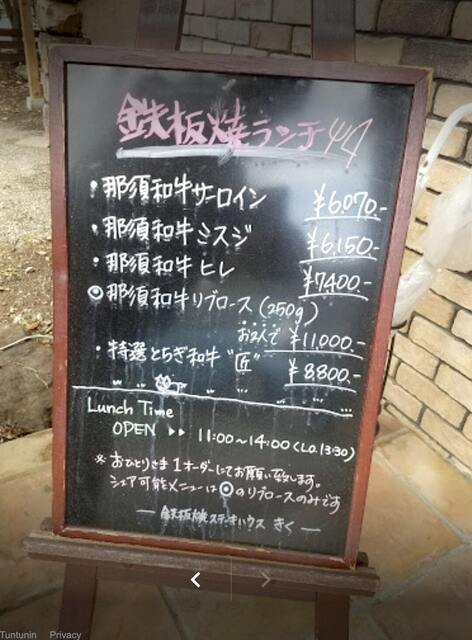 鉄板焼ランチ
・那須和牛サーロイン ¥6,070.-
・那須和牛ミスジ ¥6,150.-
・那須和牛ヒレ ¥7400.-
◎那須和牛リブロース(250g)
お2人で ¥11,000.-
・特選とちぎ和牛"匠" ¥8,800.-
Lunch Time
OPEN ▸▸ 11:00~14:00(L.O.13:30)
※おひとりさま1オーダーにてお願い致します。
シェア可能メニューは◎のリブロースのみです
― 鉄板焼ステーキハウス きく ―
Tuntunin Privacy